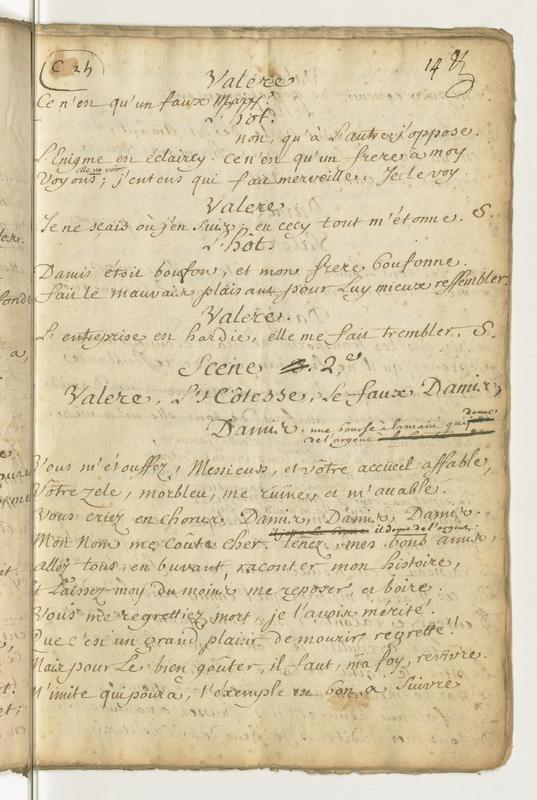 C 24
14
Valere
Ce n'est qu'un faux Mary.
L'hot.
non, qu'à L'autre j'oppose.
L'Enigme en éclaircy. Ce n'en qu'un frere à moy
elle va voir
Voyons; j'entens qui fait merveille. Je le voy.
Valere
Je ne scais où j'en suis, en cecy tout m'étonne. S.
L'hot.
Damis étoit boufon, et mon frere boufonne.
fait le mauvais plaisant pour Luy mieux ressembler.
Valere.
L'entreprise en hardie, elle me fait trembler. S.
Scene 2.e
Valere, L'Côtesse, Le faux Damis,
donne
Damis, une bourse à la main qui
de l'argent
Vous m'étouffez, Messieurs, et vôtre accueil affable,
Vôtre zele, morbleu, me rüine, et m'acable.
Vous criez en chorus Damis, Damis, Damis.
il done de l'argent
Mon Nom me coûte cher. tenez, mes bons amis,
allez tous en buvant raconter mon histoire,
Et Laissez-moy du moins me reposer, et boire.
Vous me regrettiez mort, je l'avois mérité.
Que c'est un grand plaisir de mourir regretté!
Mais pour Le bien goûter, il faut, ma foy, revivre.
M'imite qui poura, l'exemple en bon à suivre